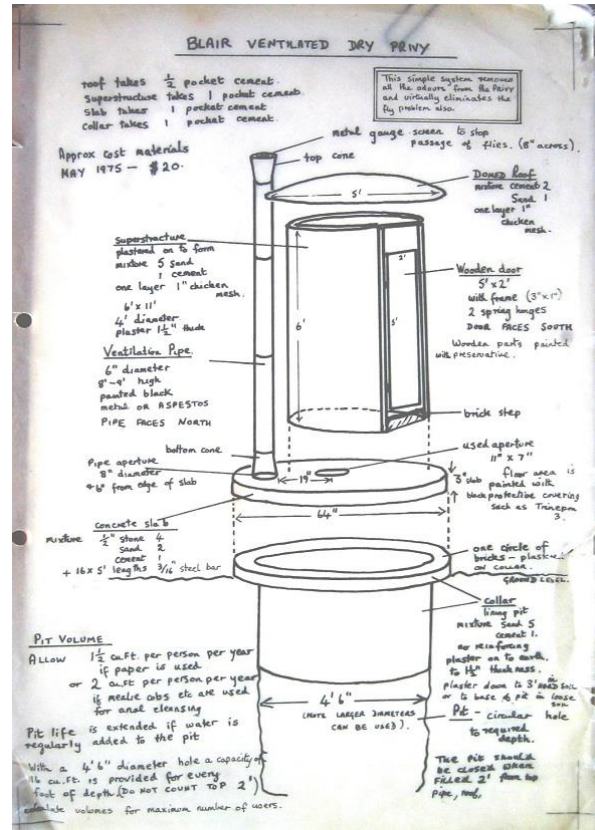 BLAIR VENTILATED DRY PRIVY
roof takes ½ pocket cement.
Superstructure takes 1 pocket cement.
Slab takes 1 pocket cement
Collar takes 1 pocket cement.
Approx cost materials
MAY 1975 — $20.
This simple system removes
all the odours from the PRIVY
and virtually eliminates the
fly problem also.
metal gauge screen to stop
passage of flies. (8" across).
top cone
5'
DOMED ROOF
mixture cement 2
Sand 1
one layer 1"
chicken
mesh.
Superstructure
plastered on to form
mixture 5 sand
1 cement
one layer 1" chicken
mesh.
6' x 11'
4' diameter
plaster 1½" thick
6'
2'
5'
Wooden door
5' x 2'
with frame (3"x1")
2 spring hinges
DOOR FACES SOUTH
Wooden parts painted
with preservative.
Ventilation Pipe.
6" diameter
8'-9' high
painted black
metal OR ASPESTOS
PIPE FACES NORTH
brick step
bottom cone
Pipe aperture
8" diameter
6" from edge of slab
19"
used aperture
11" x 7"
3" slab
floor area is
painted with
black protective covering
such as
3.
64"
concrete slab
mixture ½" stone 4
sand 2
cement 1
+ 16 x 5' lengths 3/16" steel bar
one circle of
bricks – 
on COLLAR.
GROUND LEVEL.
Collar
lining pit
mixture sand 5
cement 1.
no reinforcing
plaster on to earth.
to 1½" thickness.
plaster down to 3' in HARD SOIL
or to base of pit in loose
soil
PIT VOLUME
ALLOW 1½ cu.ft. per person per year
if paper is used
or 2 cu.ft per person per year
if mealie cobs etc are used
for anal cleansing
Pit life is extended if water is
regularly added to the pit
With a 4'6" diameter hole a capacity of
16 cu.ft. is provided for every
foot of depth. (DO NOT COUNT TOP 2')
calculate volumes for maximum number of users.
4' 6"
(NOTE LARGER DIAMETERS
CAN BE USED).
Pit – circular hole
to required
depth.
The pit should
be closed when
filled 2' from top
pipe, roof,